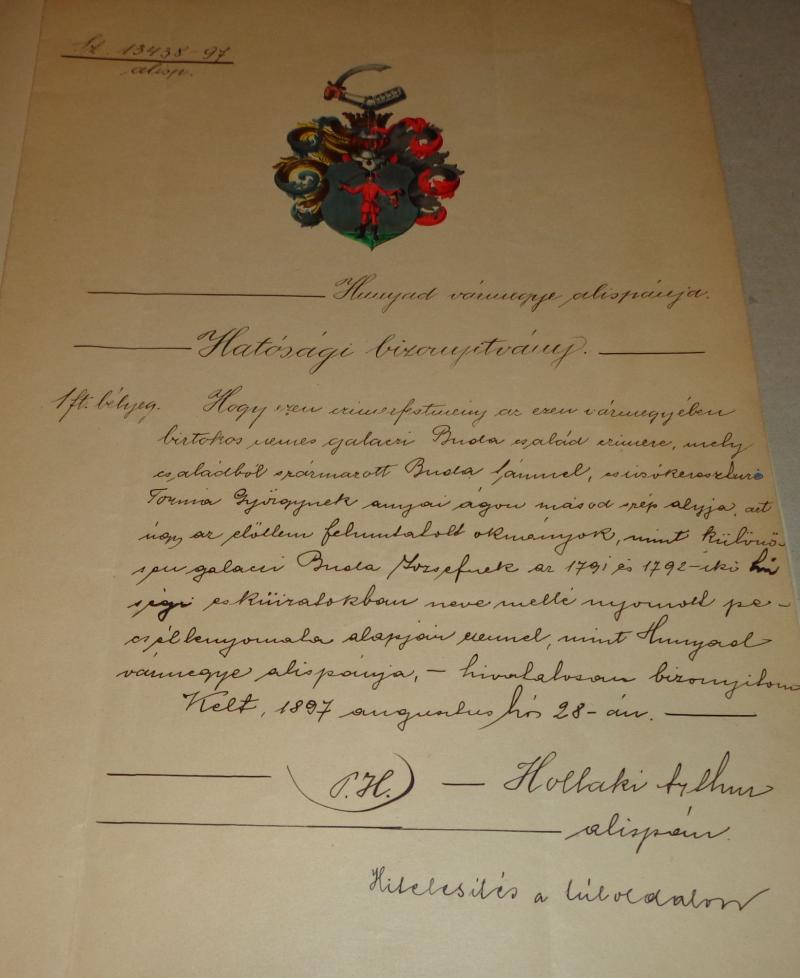 Sz. 13438-97
alisp.
Hunyad vármegye alispánja.
Hatósági bizonyitvány.
1 ft. bélyeg. Hogy ezen czimerfestmény az ezen vármegyében
birtokos nemes galaczi Buda család czimere, mely
családból származott Buda Sámuel, csicsókeresztúri
Torma Györgynek anyai ágon másod szép atyja, azt
úgy az előttem felmutatott okmányok, mint különö-
sen galaczi Buda Józsefnek az 1791 és 1792-iki hű
ségi esküiratokban neve mellé nyomott pe-
csétlenyomata alapján ezennel, mint Hunyad
vármegye alispánja, – hivatalosan bizonyitom
Kelt, 1897 augusztus hó 28-án.
P.H. — Hollaki Arthur
alispán.
Hitelesítés a túloldalon